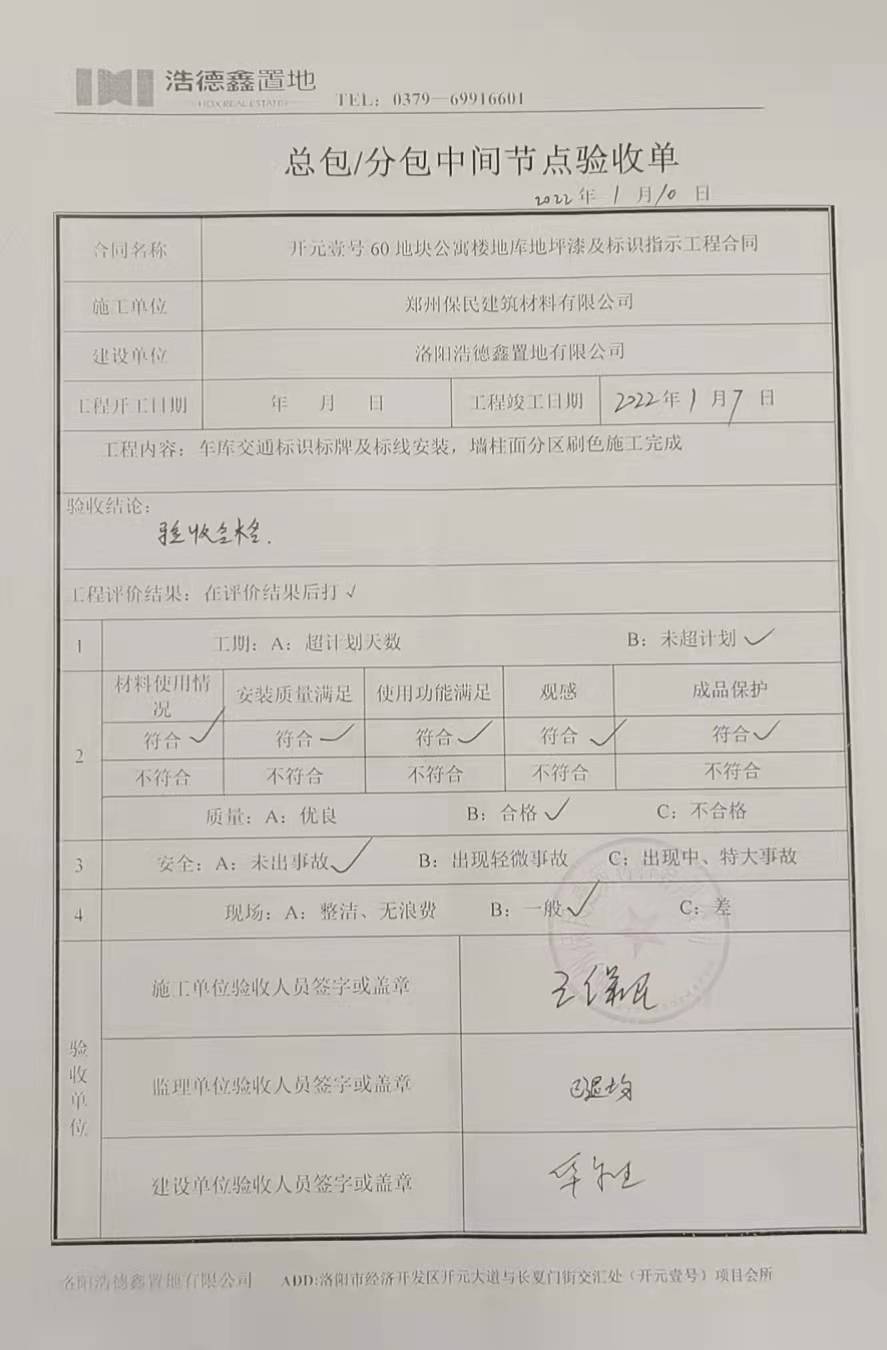 浩德鑫置地
TEL：0379—69916601
总包/分包中间节点验收单
2022年 1 月10 日
合同名称 开元壹号60地块公寓楼地库地坪漆及标识指示工程合同
施工单位 郑州保民建筑材料有限公司
建设单位 洛阳浩德鑫置地有限公司
工程开工日期 年 月 日 工程竣工日期 2022年 1 月 7 日
工程内容：车库交通标识标牌及标线安装，墙柱面分区刷色施工完成
验收结论：
验收合格.
工程评价结果：在评价结果后打√
1 工期：A：超计划天数 B：未超计划 ✓
材料使用情况 安装质量满足 使用功能满足 观感 成品保护
2 符合 ✓ 符合 ✓ 符合 ✓ 符合 ✓ 符合 ✓
不符合 不符合 不符合 不符合 不符合
质量：A：优良 B：合格 ✓ C：不合格
3 安全：A：未出事故 ✓ B：出现轻微事故 C：出现中、特大事故
4 现场：A：整洁、无浪费 B：一般 ✓ C：差
验收单位
施工单位验收人员签字或盖章 王保民
监理单位验收人员签字或盖章
建设单位验收人员签字或盖章
洛阳浩德鑫置地有限公司 ADD:洛阳市经济开发区开元大道与长夏门街交汇处（开元壹号）项目会所